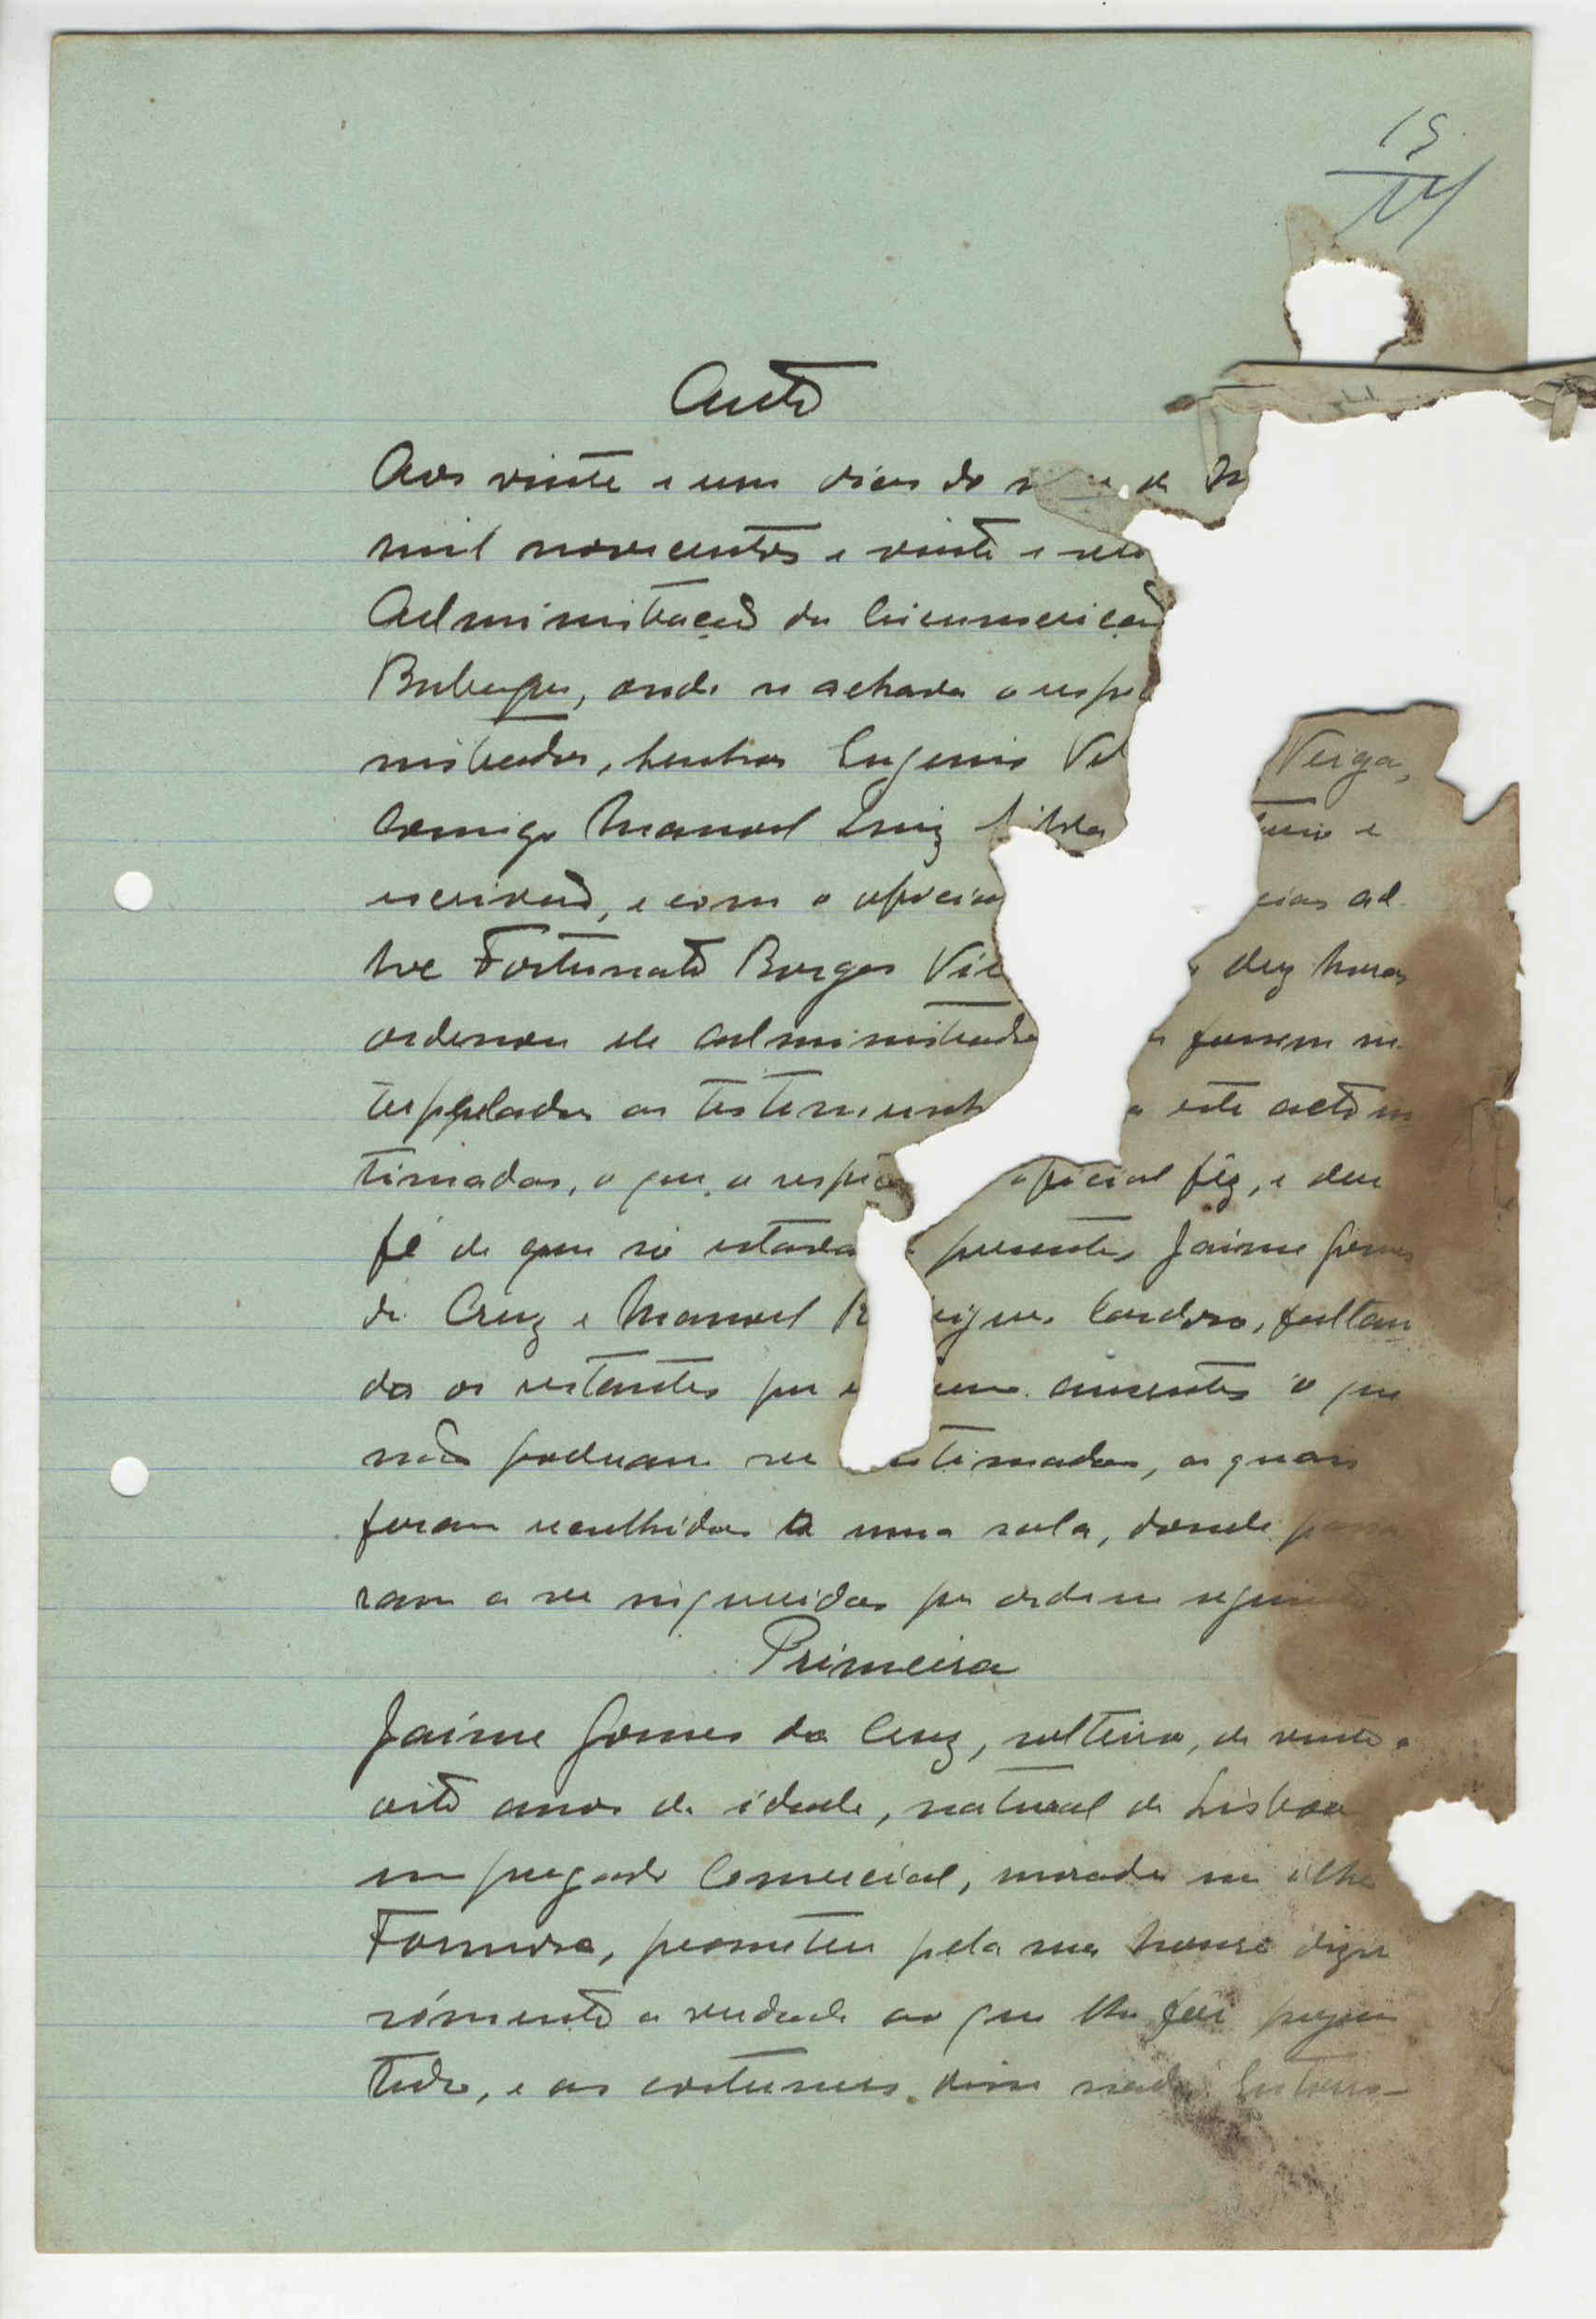 15
14
Auto
Aos vinte e um dias do de
mil novecentos e vinte e
Administração da Circunscrição
Bubaque, onde se achava o
nistrador, Senhor Eugenio Veiga,
Comigo Manoel Luiz e
escrivão, e com o oficia cias ad
hoc Fortunato Borges Vie dez horas
ordenou ele administrado fossem in
terpelados as testemunh a este acto in
timadas, o que o respe oficial fêz, e deu
fé de que só estava presentes Jaime Gomes
da Cruz e Manoel R igues Cardoso, faltan
do os restantes por ausentes e que
não puderam ser timadas, as quais
foram recolhidas a uma sala, donde passa
ram a ser inqueridas por ordem seguinte
Primeira
Jaime Gomes da Cruz, solteiro, de vinte e
oito anos de idade, natural de Lisboa
empregado Comercial, morador na ilha
Formosa, prometeu pela sua honra dizer
sómente a verdade ao que lhe fôr pergun
tado, e aos costumes disse nada.